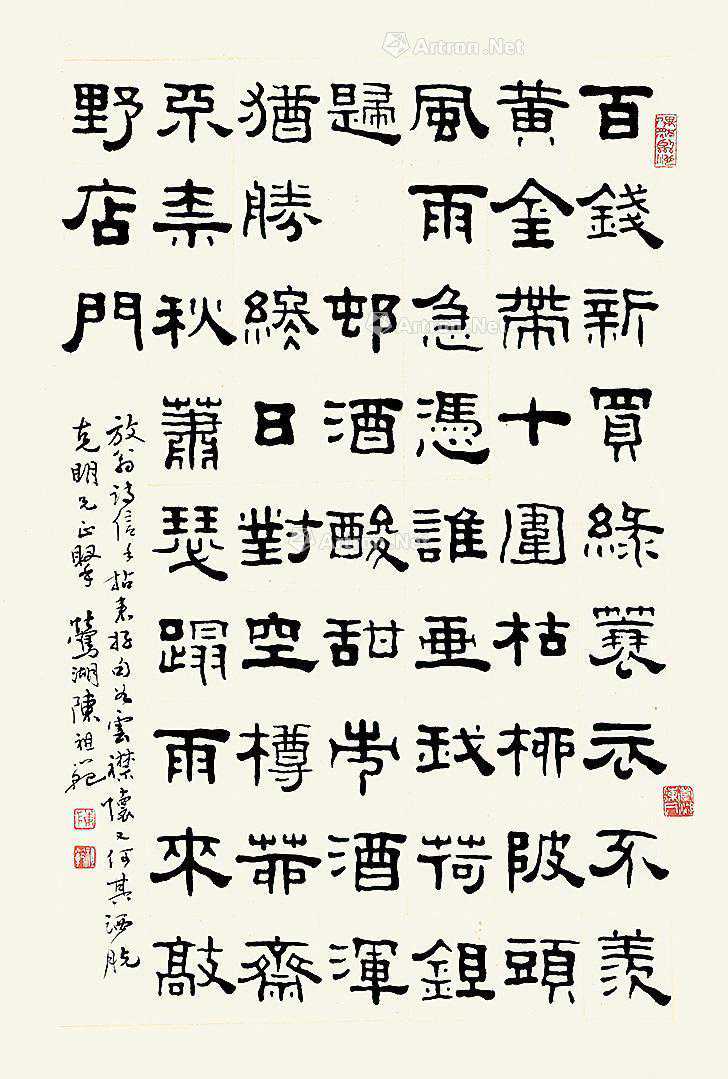 Artron.Net
百錢新買綠蓑衣不羡
黄金帶十圍枯柳陂頭
風雨急憑誰畫我荷鉏
歸 邨酒酸甜市酒渾
猶勝終日對空樽茆齋
不柰秋蕭瑟蹋雨來敲
野店門
放翁诗信手拈来好句如雲襟懷又何其洒脱
克明兄正 鶯湖陳祖範
Artron.Net
Artron.Net